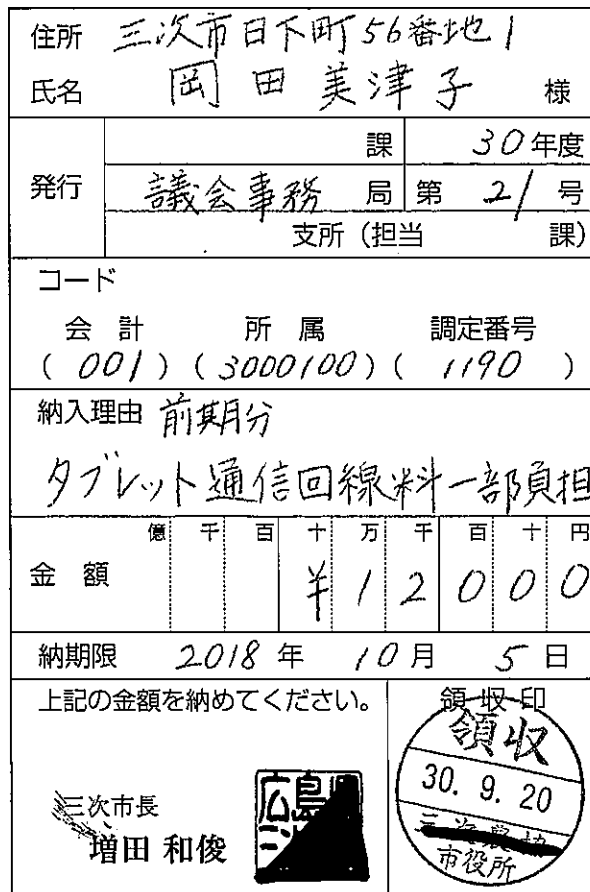 住所 三次市日下町56番地1
氏名 岡田美津子 様
発行
課 30年度
議会事務局 第21号
支所(担当 課)
コード
会計 所属 調定番号
(001)(3000100)(1190)
納入理由 前期分
タブレット通信回線料一部負担
億 千 百 十 万 千 百 十 円
金額 ¥12000
納期限 2018年10月5日
上記の金額を納めてください。
三次市長
増田 和俊
領収印
領収
30.9.20
市役所